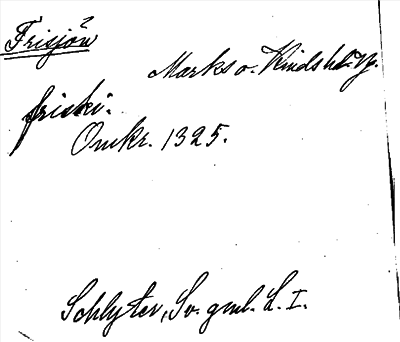 Frisjön
Marks o. Kinds hd. Vg.
friski.
Omkr. 1325.
Schlyter, Sv. gml. L. I.